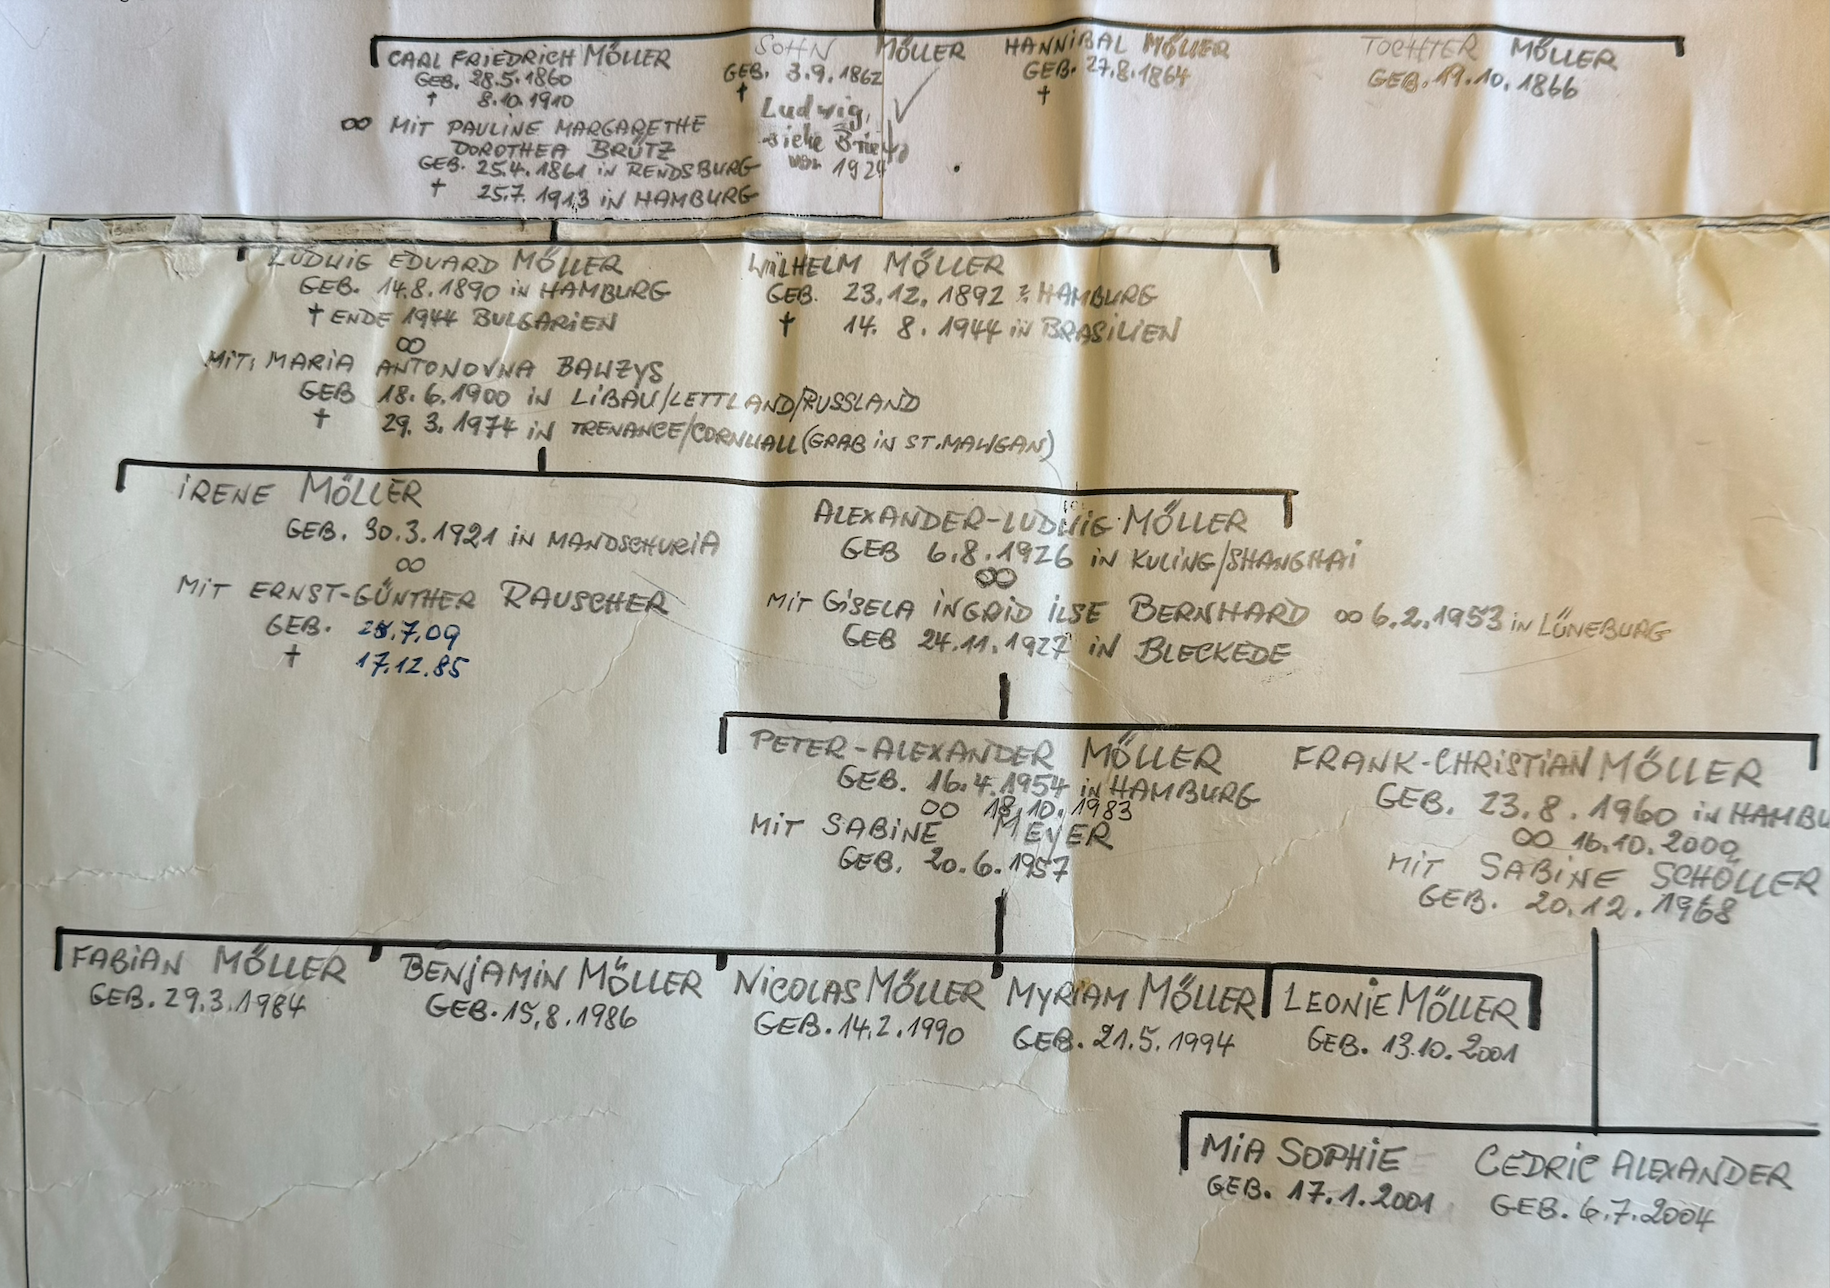 CARL FRIEDRICH MÖLLER
GEB. 28.5.1860
† 8.10.1910
∞ MIT PAULINE MARGARETHE
DOROTHEA BRÜTZ
GEB. 25.4.1861 IN RENDSBURG
† 25.7.1913 IN HAMBURG
SOHN MÖLLER
GEB. 3.9.1862
†
Ludwig,
siehe Brief
von 1924
HANNIBAL MÖLLER
GEB. 27.8.1864
†
TOCHTER MÖLLER
GEB. 19.10.1866
LUDWIG EDUARD MÖLLER
GEB. 14.8.1890 IN HAMBURG
† ENDE 1944 BULGARIEN
∞
MIT MARIA ANTONOVNA BAWZYS
GEB 18.6.1900 IN LIBAU/LETTLAND/RUSSLAND
† 29.3.1974 IN TRENANCE/CORNWALL (GRAB IN ST. MAWGAN)
WILHELM MÖLLER
GEB. 23.12.1892 HAMBURG
† 14.8.1944 IN BRASILIEN
IRENE MÖLLER
GEB. 30.3.1921 IN MANDSCHURIA
∞
MIT ERNST-GÜNTHER RAUSCHER
GEB. .7.09
† 17.12.85
ALEXANDER-LUDWIG MÖLLER
GEB 6.8.1926 IN KULING/SHANGHAI
∞
MIT GISELA INGRID ILSE BERNHARD ∞ 6.2.1953 IN LÜNEBURG
GEB 24.11.1927 IN BLECKEDE
PETER-ALEXANDER MÖLLER
GEB. 16.4.1954 IN HAMBURG
∞ 18.10.1983
MIT SABINE MEYER
GEB. 20.6.1957
FRANK-CHRISTIAN MÖLLER
GEB. 23.8.1960 IN HAMBU
∞ 16.10.2000
MIT SABINE SCHÖLLER
GEB. 20.12.1968
FABIAN MÖLLER
GEB. 29.3.1984
BENJAMIN MÖLLER
GEB. 15.8.1986
NICOLAS MÖLLER
GEB. 14.2.1990
MYRIAM MÖLLER
GEB. 21.5.1994
LEONIE MÖLLER
GEB. 13.10.2001
MIA SOPHIE
GEB. 17.1.2001
CEDRIC ALEXANDER
GEB. 6.7.2004